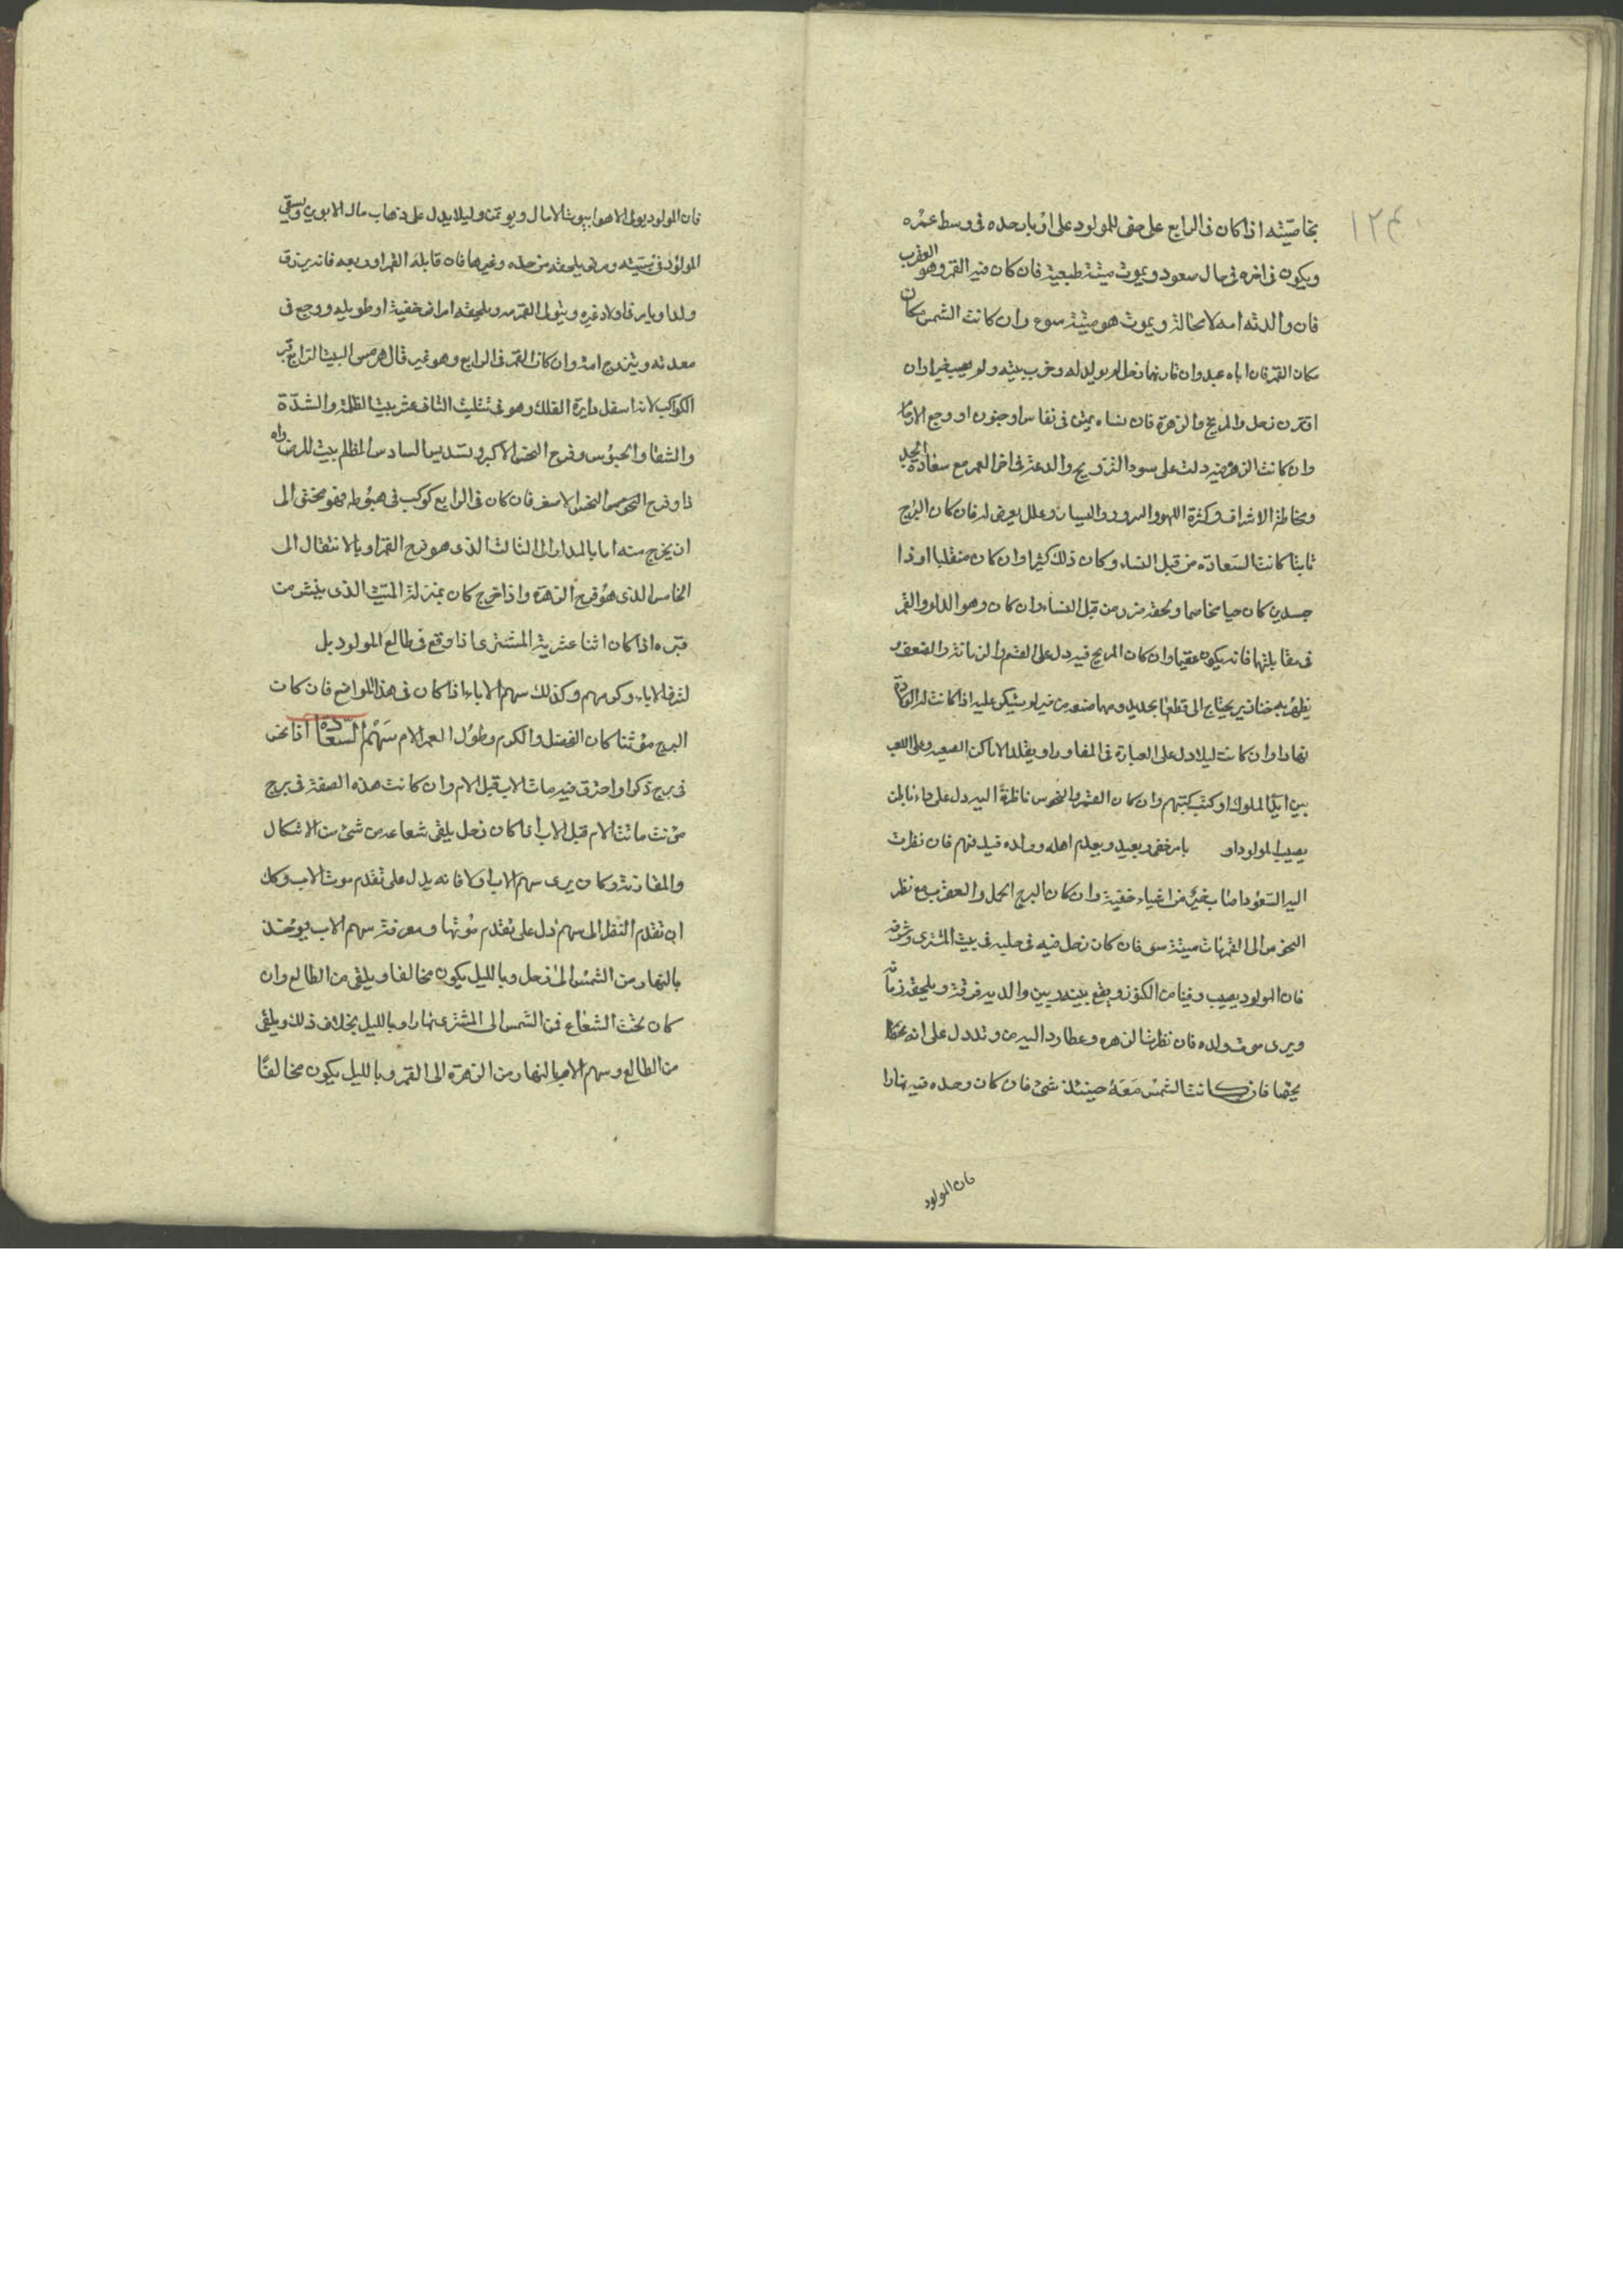 ١٢٤
بخاصيته اذا كان فى الرابع على حفى للمولود على ادبار جده فى وسط عمره
ويكون فى اخره فى حال صعود ويموت ميتة طبيعية فان كان فيه القمر وهو العقرب
فان والدته امه لا محالة ويموت هو ميتة سوء وان كانت الشمس مكان
مكان القمر فان اباه عبد وان قارنهما زحل لم يولد له وخرب بيته ولم يصب خيرا وان
اقترن زحل والمريخ والزهرة فان نساه يمتن فى نفاس او جنون او وجع الارحام
وان كانت الزهرة فيه دلت على سود التزويج والدعة فى اخر العمر مع سعادة الجد
ومخاطة الاشراف وكثرة اللهو والسرور والنسيان وعلل يعرض له فان كان البرج
ثابتا كانت السعادة من قبل النساء وكان ذلك كثيرا وان كان منقلبا او ذا
جسدين كان حيا مخاصما ولحقه ضرر من قبل النساء وان كان وهو الدلو والقمر
فى مقابلتها فانه يكون عقيما وان كان المريخ فيه دل على الغشم والزمانة والضعف و
يظهر به خنازير يحتاج الى قطعها بحديد ومهما صنعه من خير لم يشكر عليه اذا كانت له الولادة
نهارا وان كانت ليلا دل على العبارة فى المفاوز او يقلد الاماكن الصعبه وعلى اللعب
بين ايدى الملوك او كتب كتبهم وان كان القمر والنحوس ناظرة اليه دل على داء نابلن
يصيب المولود او بامر خفى وبعيد ويعدم اهله وولده فيدفنهم فان نظرت
اليه السعود اصاب خيرا من اشياء خفية وان كان البرج الحمل والعقرب مع نظر
النحوس الى القمر مات ميتة سو فان كان زحل فيه فى حليه فى بيت المشترى وشرفه
فان المولود يصيب دفينا من الكنوز ويقع بينه وبين والديه فرقة ويلحقه زمانه
ويرى موت ولده فان نظرت الزهره وعطارد اليه من وتد دل على انه
يخصا فان كانت الشمس معه حينئذ شئ فان كان وحده فيه نهارا
فان المولود
فان المولود يولى الاهوا ببيوت الامال ويوتمن وليلا يدل على ذهاب مال الابوين وبقى
المولود فى تشتيته ومرض يلحقه من جده وغيرها فان قابله القمر او ربعه فانه يرزق
ولدا ويامر فاولاد غيره ويتولى القمر مه ويلحقه امراض خفية او طويله ووجع فى
معدته ويتزوج امة وان كان القمر فى الرابع وهو غير قال هرمس البيت الرابع قبر
الكواكب لانه اسفل دايرة الفلك وهو فى تثليث الثانى عشر بيت الظلمة والشدة
والشقا والحبوس وفرح النحس الاكبر وتسديس السادس المظلم بيت المرض واه
ذا وفرح النحوس النحس الاصغر فان كان فى الرابع كوكب فى هبوطه فهو مختفى الى
ان يخرج منه اما بالمدار الى الثالث الذى هو فرح القمر او بالانتقال الى
الخامس الذى هو فرح الزهرة واذا خرج كان بمنزلة الميت الذى ينشر من
قبره اذا كان اثنا عشرية المشترى اذا وقع فى طالع المولود بل
لشرف الاباء وكرمهم وكذلك سهم الاباء اذا كان فى هذا المواضع فان كان
البرج مؤنثا كان الفضل والكرم وطول العمر الام سهم السعادة اذا نحس
فى برج ذكر او احترق فيه مات الاب قبل الام وان كانت هذه الصفة فى برج
مؤنث ماتت الام قبل الاب اذا كان زحل يلقى شعاعه من شئ من الاشكال
والمقارنة وكان يرى سهم الاب اولا فانه يدل على تقدم موت الاب وكل
ان تقدم النظر الى سهم دل على تقدم موتها ومعرفة سهم الاب يوخذ
بالنهار من الشمس الى زحل وبالليل يكون مخالفا ويلقى من الطالع وان
كان تحت الشعاع فمن الشمس الى المشترى نهارا وبالليل بخلاف ذلك ويلقى
من الطالع وسهم الام بالنهار من الزهرة الى القمر وبالليل يكون مخالفا